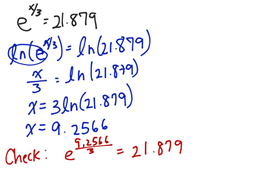 e^{x/3} = 21.879
ln(e^{x/3}) = ln(21.879)
x/3 = ln(21.879)
x = 3ln(21.879)
x = 9.2566
Check: e^{9.2566/3} = 21.879